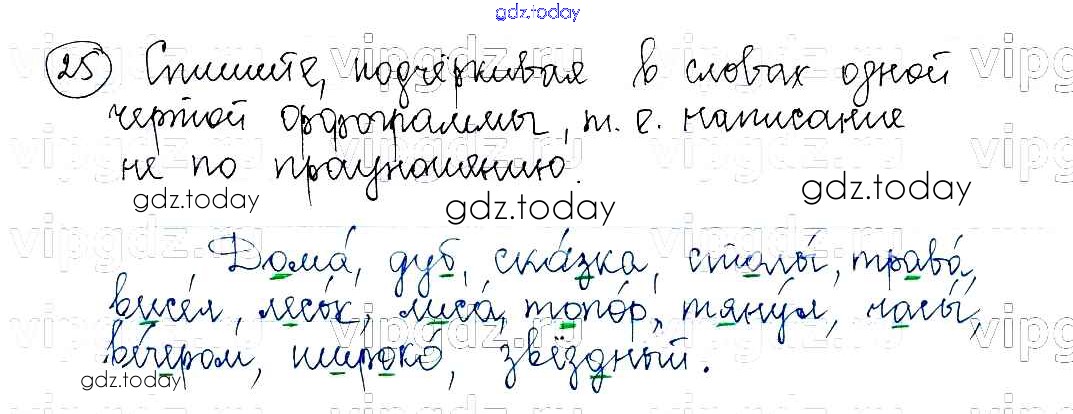 gdz.today
25 Спишите, подчёркивая в словах одной
чертой орфограммы, т. е. написание
не по произношению.
gdz.today gdz.today gdz.today
Дома́, дуб, ска́зка, столы́, трава́,
висе́л, лесо́к, лиса́, топо́р, тяну́л, часы́,
ве́чером, широко́, звёздный.
gdz.today